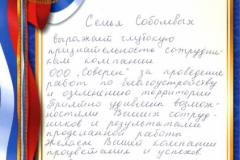 Семья Соболевых
выражает глубокую
признательность сотрудни-
кам компании
ООО "Соверен" за проведение
работ по благоустройству
и озеленению территории
Приятно удивлены возмож-
ностями Ваших сотруд-
ников и результатами
проделанной работы
Желаем Вашей компании
процветания и успехов